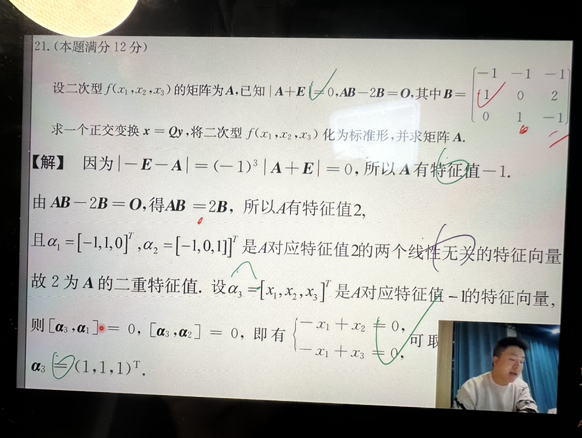 21.(本题满分12分)
设二次型 f(x₁,x₂,x₃) 的矩阵为 A,已知 |A+E|=0,AB-2B=O,其中 B=
-1 -1 -1
1 0 2
0 1 -1
求一个正交变换 x=Qy,将二次型 f(x₁,x₂,x₃) 化为标准形,并求矩阵 A.
【解】 因为 |-E-A|=(-1)³|A+E|=0,所以 A 有特征值 -1.
由 AB-2B=O,得 AB=2B, 所以A有特征值2,
且α₁=[-1,1,0]ᵀ,α₂=[-1,0,1]]ᵀ是A对应特征值2的两个线性无关的特征向量
故 2 为 A 的二重特征值. 设α₃=[x₁,x₂,x₃]ᵀ是A对应特征值-1的特征向量,
则[α₃,α₁]=0, [α₃,α₂]=0, 即有 {-x₁+x₂=0, 可取
-x₁+x₃=0,
α₃=(1,1,1)ᵀ.